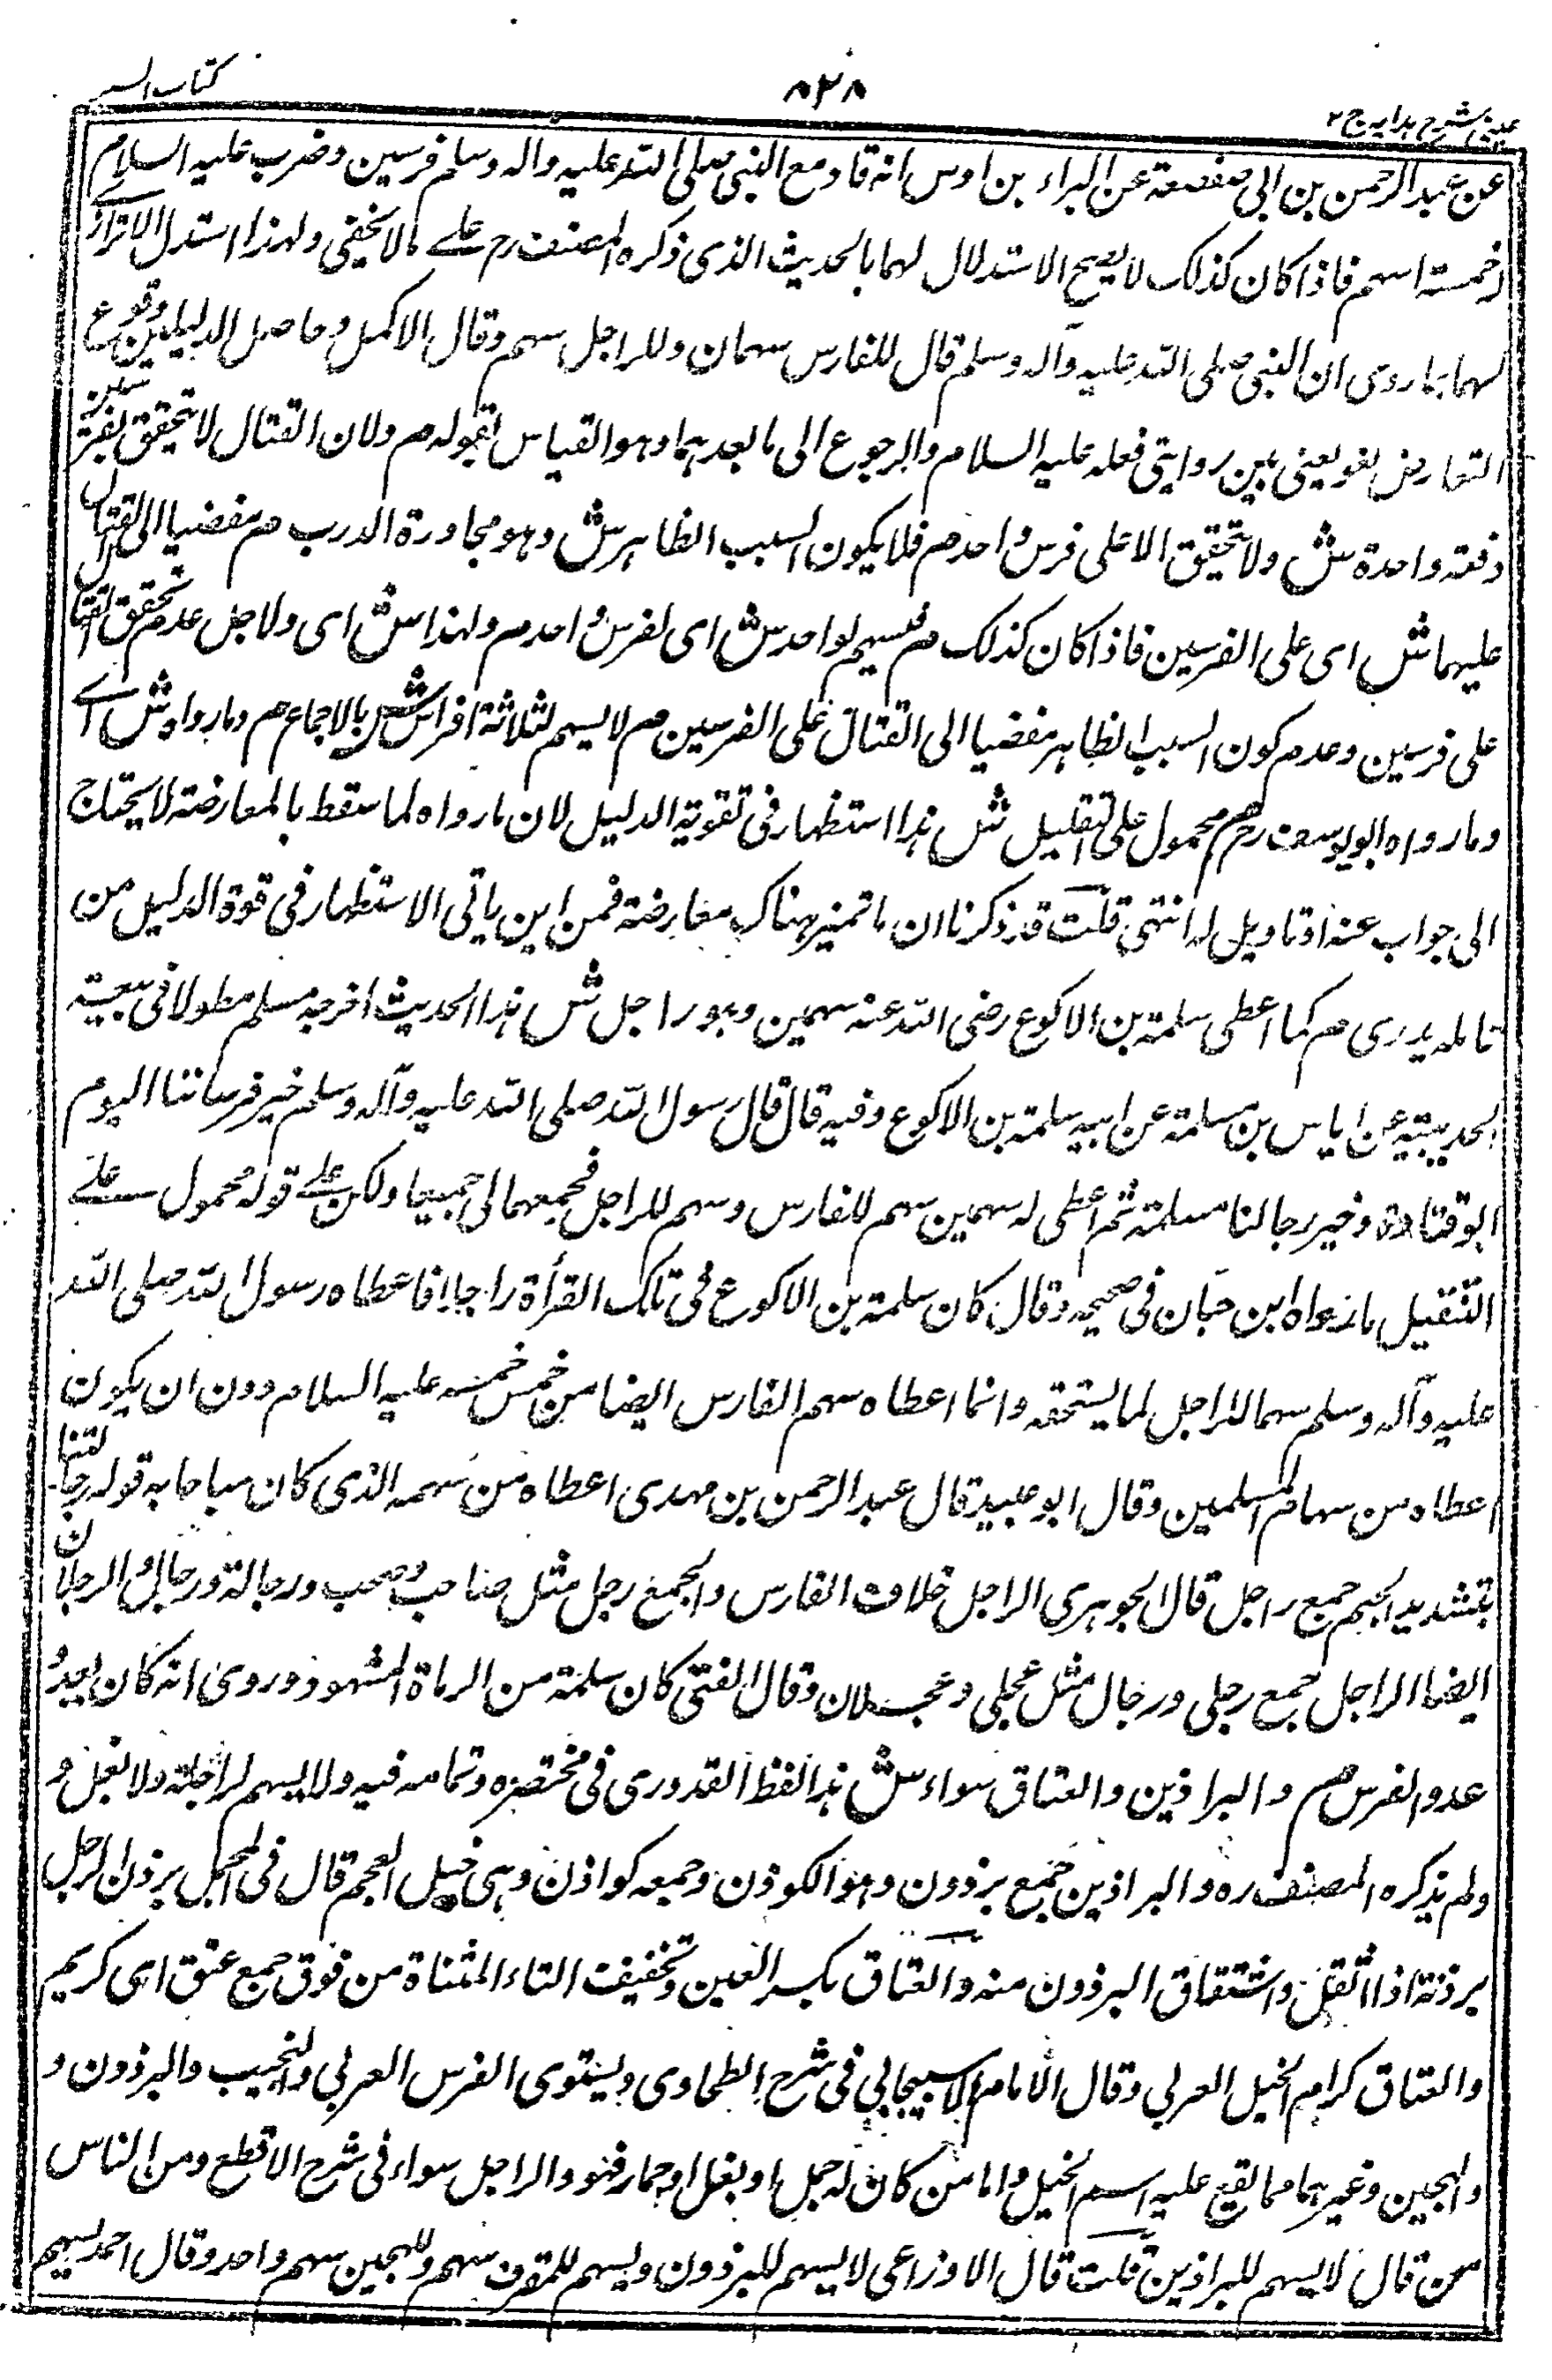 عینی شرح ہدایہ ج ۲
۸۲۸
کتاب السیر
عن عبد الرحمن بن ابی صعصعة عن البراء بن اوس انه قاد مع النبی صلی اللہ علیه واله وسلم فرسین وضرب علیه السلام
خمسة اسهم فاذا کان کذلک لا یصح الاستدلال لهما بالحدیث الذی ذکره المصنف رح علے مالا یخفی ولهذا استدل الاترازے
لهما بما روی ان النبی صلی اللہ علیه وآله وسلم قال للفارس سهمان وللراجل سهم وقال الاکمل وحاصل الدلیلین وقوع
التعارض لغو یعنی بین روایتی فعله علیه السلام والرجوع الی ما بعدهما وهو القیاس بقوله م ولان القتال لا یتحقق بفرسین
دفعة واحدة ش ولا یتحقق الا علی فرس واحد م فلا یکون السبب الظاهر ش وهو مجاوزة الدرب م مفضیا الی القتال
علیهما ش ای علی الفرسین فاذا کان کذلک م فیسهم لواحد ش ای لفرس واحد م ولهذا ش ای ولاجل عدم تحقق القتال
علی فرسین وعدم کون السبب الظاهر مفضیا الی القتال علی الفرسین م لا یسهم لثلاثة افراس ش بالاجماع م وما رواه ش اے
وما رواه ابو یوسف رح م محمول علی التنفیل ش هذا استظهار فی تقویة الدلیل لان ما رواه لما سقط بالمعارضة لا یحتاج
الی جواب عنه او تاویل له انتهی قلت قد ذکرنا ان ما تمیز هناک معارضة فمن این یاتی الاستظهار فی قوة الدلیل من
تامله یدری م کما اعطی سلمة بن الاکوع رضی اللہ عنه سهمین وهو راجل ش هذا الحدیث اخرجه مسلم مطولا فی بیعة
الحدیبیة عن ایاس بن سلمة عن ابیه سلمة بن الاکوع وفیه قال قال رسول اللہ صلی اللہ علیه وآله وسلم خیر فرساننا الیوم
ابو قتادة وخیر رجالتنا سلمة ثم اعطی له سهمین سهم للفارس وسهم للراجل فجمعهما لی جمیعا ولکن علے قوله محمول علے
التنفیل ما رواه ابن حبان فی صحیحه وقال کان سلمة بن الاکوع فی تلک القرأة راجلا فاعطاه رسول اللہ صلی اللہ
علیه وآله وسلم سهما للراجل لما یستحقه وانما اعطاه سهم الفارس ایضا من خمس خمسه علیه السلام دون ان یکون
اعطاه من سهام المسلمین وقال ابو عبید قال عبد الرحمن بن مهدی اعطاه من سهمه الذی کان مباحا به قوله رجالتنا
بتشدید الجیم جمع راجل قال الجوهری الراجل خلاف الفارس والجمع رجل مثل صاحب وصحب ورجالة ورجال والرجلان
ایضا الراجل جمع رجلی ورجال مثل عجلی وعجلان وقال الفتی کان سلمة من الرماة المشهود وروی انه کان یعدو
عدو الفرس م والبراذین والعتاق سواء ش هذا لفظ القدوری فی مختصره وتمامه فیه ولا یسهم لراجلة ولا بغل و
ولم یذکره المصنف ره والبراذین جمع برذون وهو الکوذن وجمعه کواذن وهی خیل العجم قال فی المجمل برذن الرجل
برذنة اذا اثقل واشتقاق البرذون منه والعتاق بکسر العین وتخفیف التاء المثناة من فوق جمع عتق ای کریم
والعتاق کرام الخیل العربی وقال الامام الاسبیجابی فی شرح الطحاوی ویستوی الفرس العربی والنجیب والبرذون و
والهجین وغیرهما مما یقع علیه اسم الخیل واما من کان له جمل او بغل او حمار فهو والراجل سواء فی شرح الاقطع ومن الناس
من قال لا یسهم للبراذین قلت قال الاوزاعی لا یسهم للبرذون ویسهم للمقرف سهم وللهجین سهم واحد وقال احمد یسهم